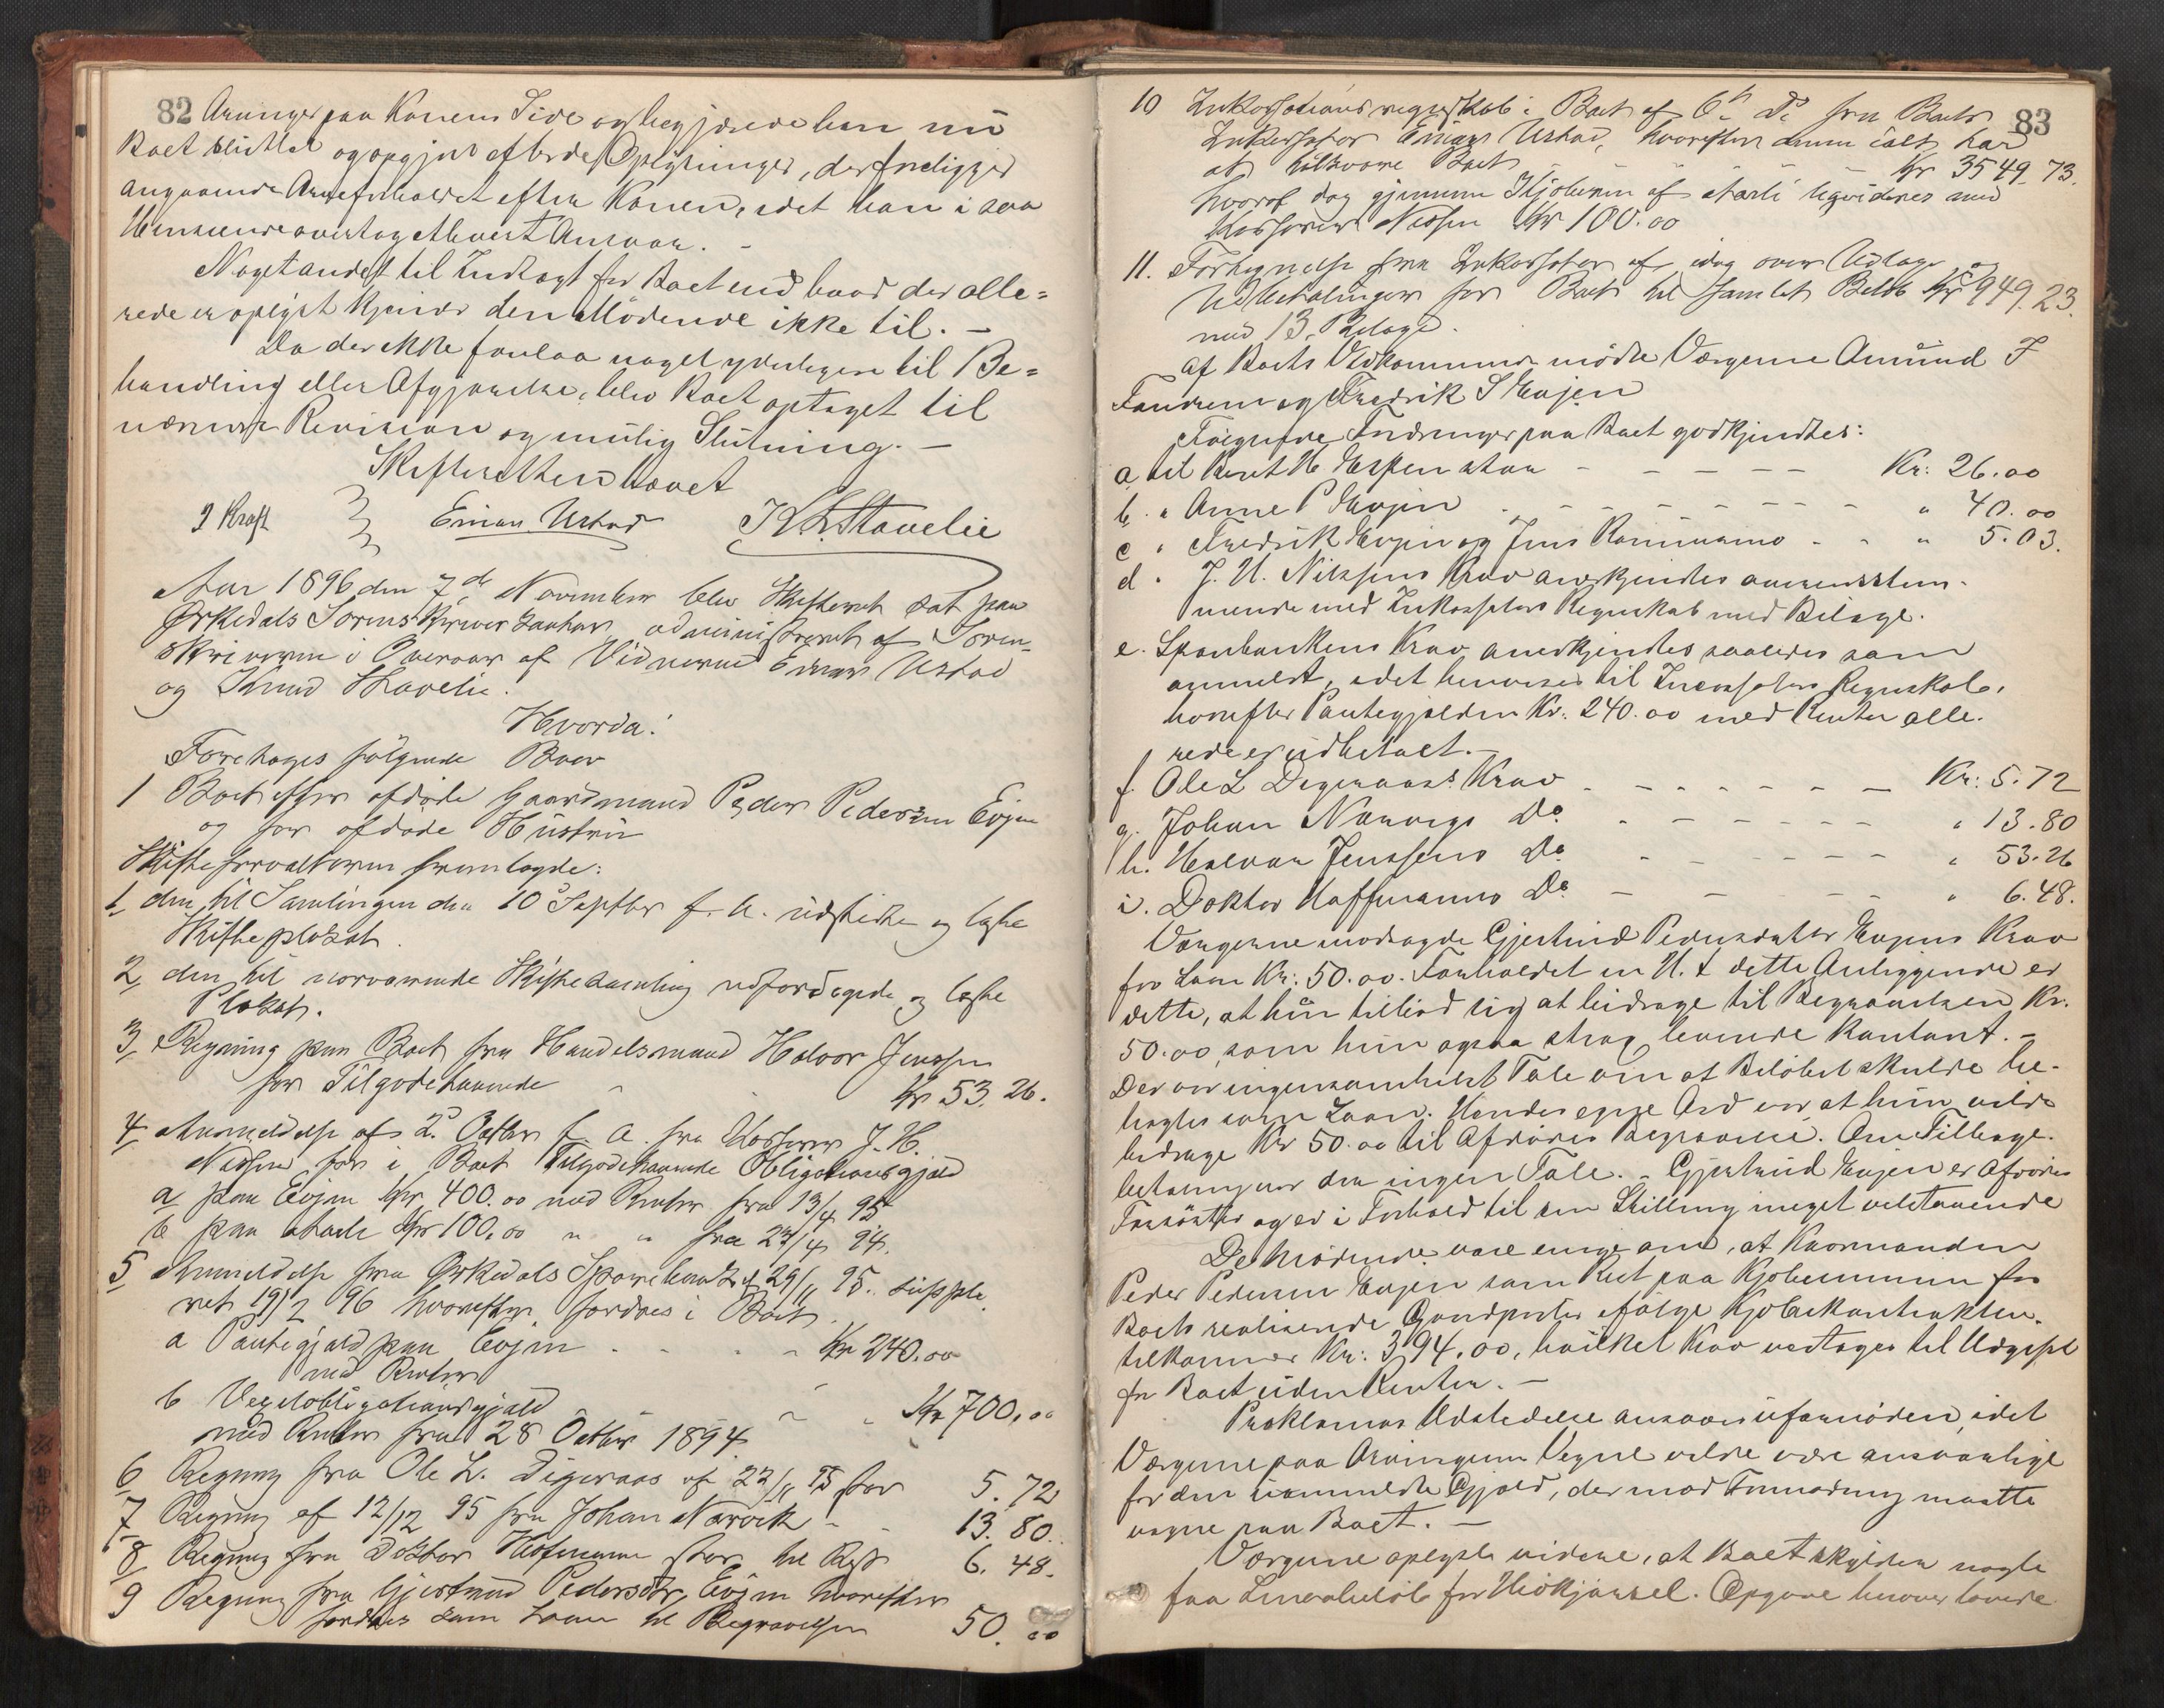 82 Arvinger paa Konens Side og begjærede han nu
Boet sluttet og opgjort efter de Oplysninger, der foreligger
angaaende Arveforholdet efter Konen, idet han i saa
Henseende overtog ethvert Ansvar. -
Noget andet til Indtægt for Boet end hvad der alle=
rede er oplyst kjender den Mødende ikke til. -
Da der ikke forelaa noget yderligere til Be=
handling eller Afgjørelse, blev Boet optaget til
nærmere Revision og mulig Slutning. -
Skifteretten hævet
J Kraft Einar Ustad K L Stavelie
Aar 1896 den 7de November blev Skifteret sat paa
Ørkedals Sorenskriver Kontor administreret af Soren-
skriveren i Overvær af Vidnerne Einar Ustad
og Knud Stavelie.
Hvorda:
Foretoges følgende Boer
1 Boet efter afdøde Gaardmand Peder Pedersen Evjen
og før afdøde Hustru
Skifteforvalteren fremlagde:
1, den til Samlingen den 10de Septbr f. A. udstedte og læste
Skifteplakat.
2, den til nærværende Skiftesamling udfærdigede og læste
Plakat.
3, Regning paa Boet fra Handelsmand Halvor Jenssen
for Tilgodehavende Kr 53. 26.
4, Anmeldelse af 2 Octbr f. A. fra Kasserer J. H.
Nilssen for i Boet Tilgodehavende Obligationsgjæld
a, paa Evjen Kr. 400.00 med Renter fra 13/4 95
b paa Kr 100.00 " " fra 27/4 94.
5, Anmeldelse fra Ørkedals Sparebank af 29/11 95. supple
ret 19/2 96 hvorefter fordres i Boet.
a Pantegjæld paa Evjen - - - Kr 240.00
med Renter
b Vexelobligationsgjæld - - Kr 700.00
med Renter fra 28 Octbr 1894
6 Regning fra Ole L. Digeraas af 22/11 95 for 5. 72
7 Regning af 12/12 95 fra Johan Narvik - - 13. 80.
8, Regning fra Doktor Hoffmann for til Rest 6. 48.
9 Regning fra Gjertrud Pedersdtr Evjen hvorefter
fordres som Laan til Begravelsen 50. 00
83
10 Inkassationsregnskab i Boet af 6te ds fra Boets
Inkassator Einar Ustad, hvorefter denne ialt har
at tilsvare Boet - - Kr 3549. 73.
hvoraf dog gjennem Kjøberen af likvideres med
Kasserer Nilssen Kr 100.00
11. Fortegnelse fra Inkassator af idag over Udlæg og
Udbetalinger for Boet til samlet Beløb Kr 949. 23.
med 13 Bilage.
Af Boets Vedkommende mødte Værgerne Amund F
Fandrem og Fredrik S Evjen
Følgende Fordringer paa Boet godkjendtes:
a, til Berit H - - - - - Kr: 26.00
b. " Anne P Evjen - - - - - - - " 40.00
c " Fredrik Evjen og Jens - - " 5.03.
d " J. H. Nilssens Krav anerkjendtes overensstem-
mende med Inkassators Regnskab med Bilage.
e. Sparebankens Krav anerkjendtes saaledes som
anmeldt, idet henvises til Inkassators Regnskab,
hvorefter Pantegjælden Kr. 240.00 med Renter alle-
rede er udbetalt. -
f. Ole L Digeraas's Krav - - - - - - Kr: 5.72
g. Johan Narviks Do - - - - - - " 13.80
h. Halvor Jenssens Do - - - - - - " 53.26
i. Doktor Hoffmanns Do - - - - " 6.48.
Værgerne modsagde Gjertrud Pedersdatter Evjens Krav
for Laan Kr: 50.00. Forholdet m. H. t dette Anliggende er
dette, at hun tilbød sig at bidrage til Begravelsen Kr.
50.00 som hun ogsaa strax leverede kontant. -
Der var ingensomhelst Tale om at Beløbet skulde be-
tragtes som Laan. Hendes egne Ord var at hun vilde
bidrage Kr 50.00 til Afdødes Begravelse. Om Tilbage-
betaling var der ingen Tale. - Gjertrud Evjen er Afdødes
og er i Forhold til sin Stilling meget velstaaende
De Mødende vare enige om, at Kaarmanden
Peder Pedersen Evjen som Rest paa Kjøbesummen for
Boets realiserede Gaardparter ifølge Kjøbekontrakten
tilkommer Kr: 394.00, hvilket Krav vedtages til Udgift
for Boet uden Renter. -
Proklamas Udstedelse ansaaes ufornøden, idet
Værgerne paa Arvingernes Vegne vilde være ansvarlige
for den uanmeldte Gjæld, der mod Formodning maatte
vogne paa Boet. -
Værgerne oplyste videre, at Boet skylder nogle
faa Smaabeløb for Hiokjørsel. Opgave herover lovede